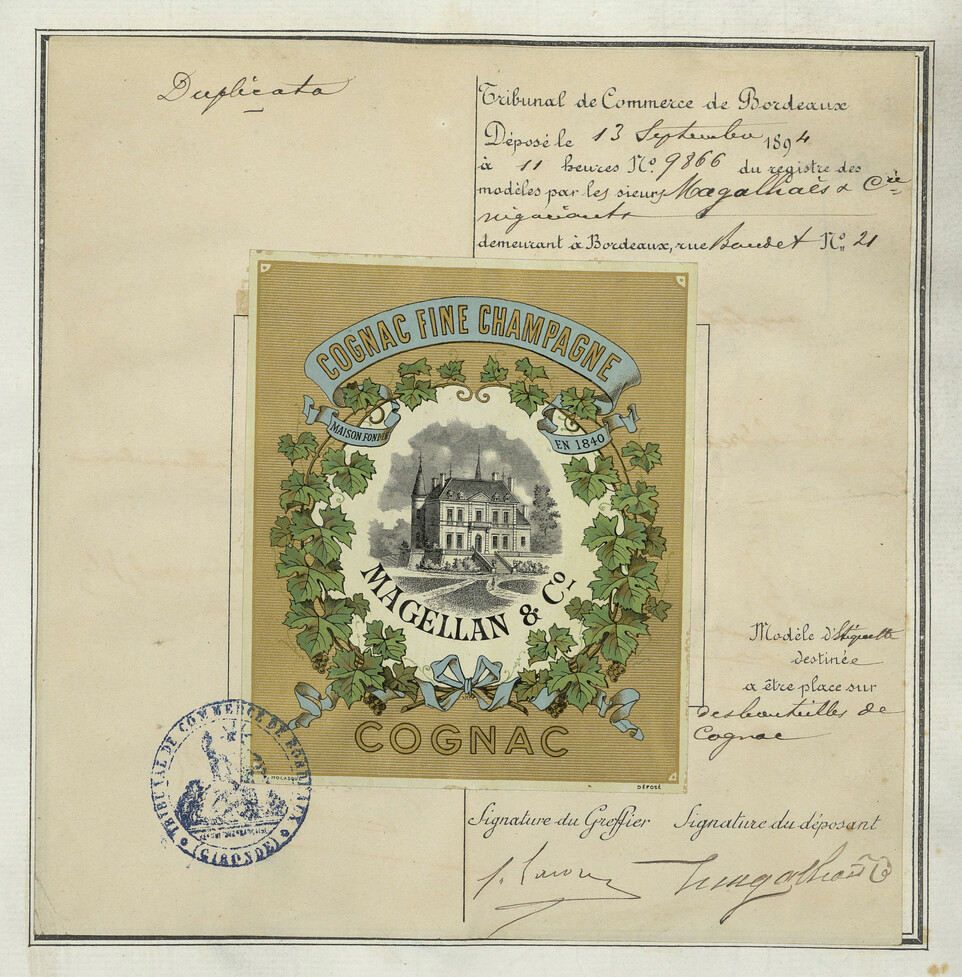 Duplicata
Tribunal de Commerce de Bordeaux
Déposé le 13 Septembre 1894
à 11 heures Nº 9866 du registre des
modèles par les sieurs Magalhaès & Cie
négociants
demeurant à Bordeaux, rue Baudet Nº 21
COGNAC FINE CHAMPAGNE
MAISON FONDÉE
EN 1840
MAGELLAN & Co.
COGNAC
DÉPOSÉ
Modèle d'Etiquette
destinée
a être place sur
des bouteilles de
Cognac
TRIBUNAL DE COMMERCE DE BORDEAUX
(GIRONDE)
Signature du Greffier Signature du déposant